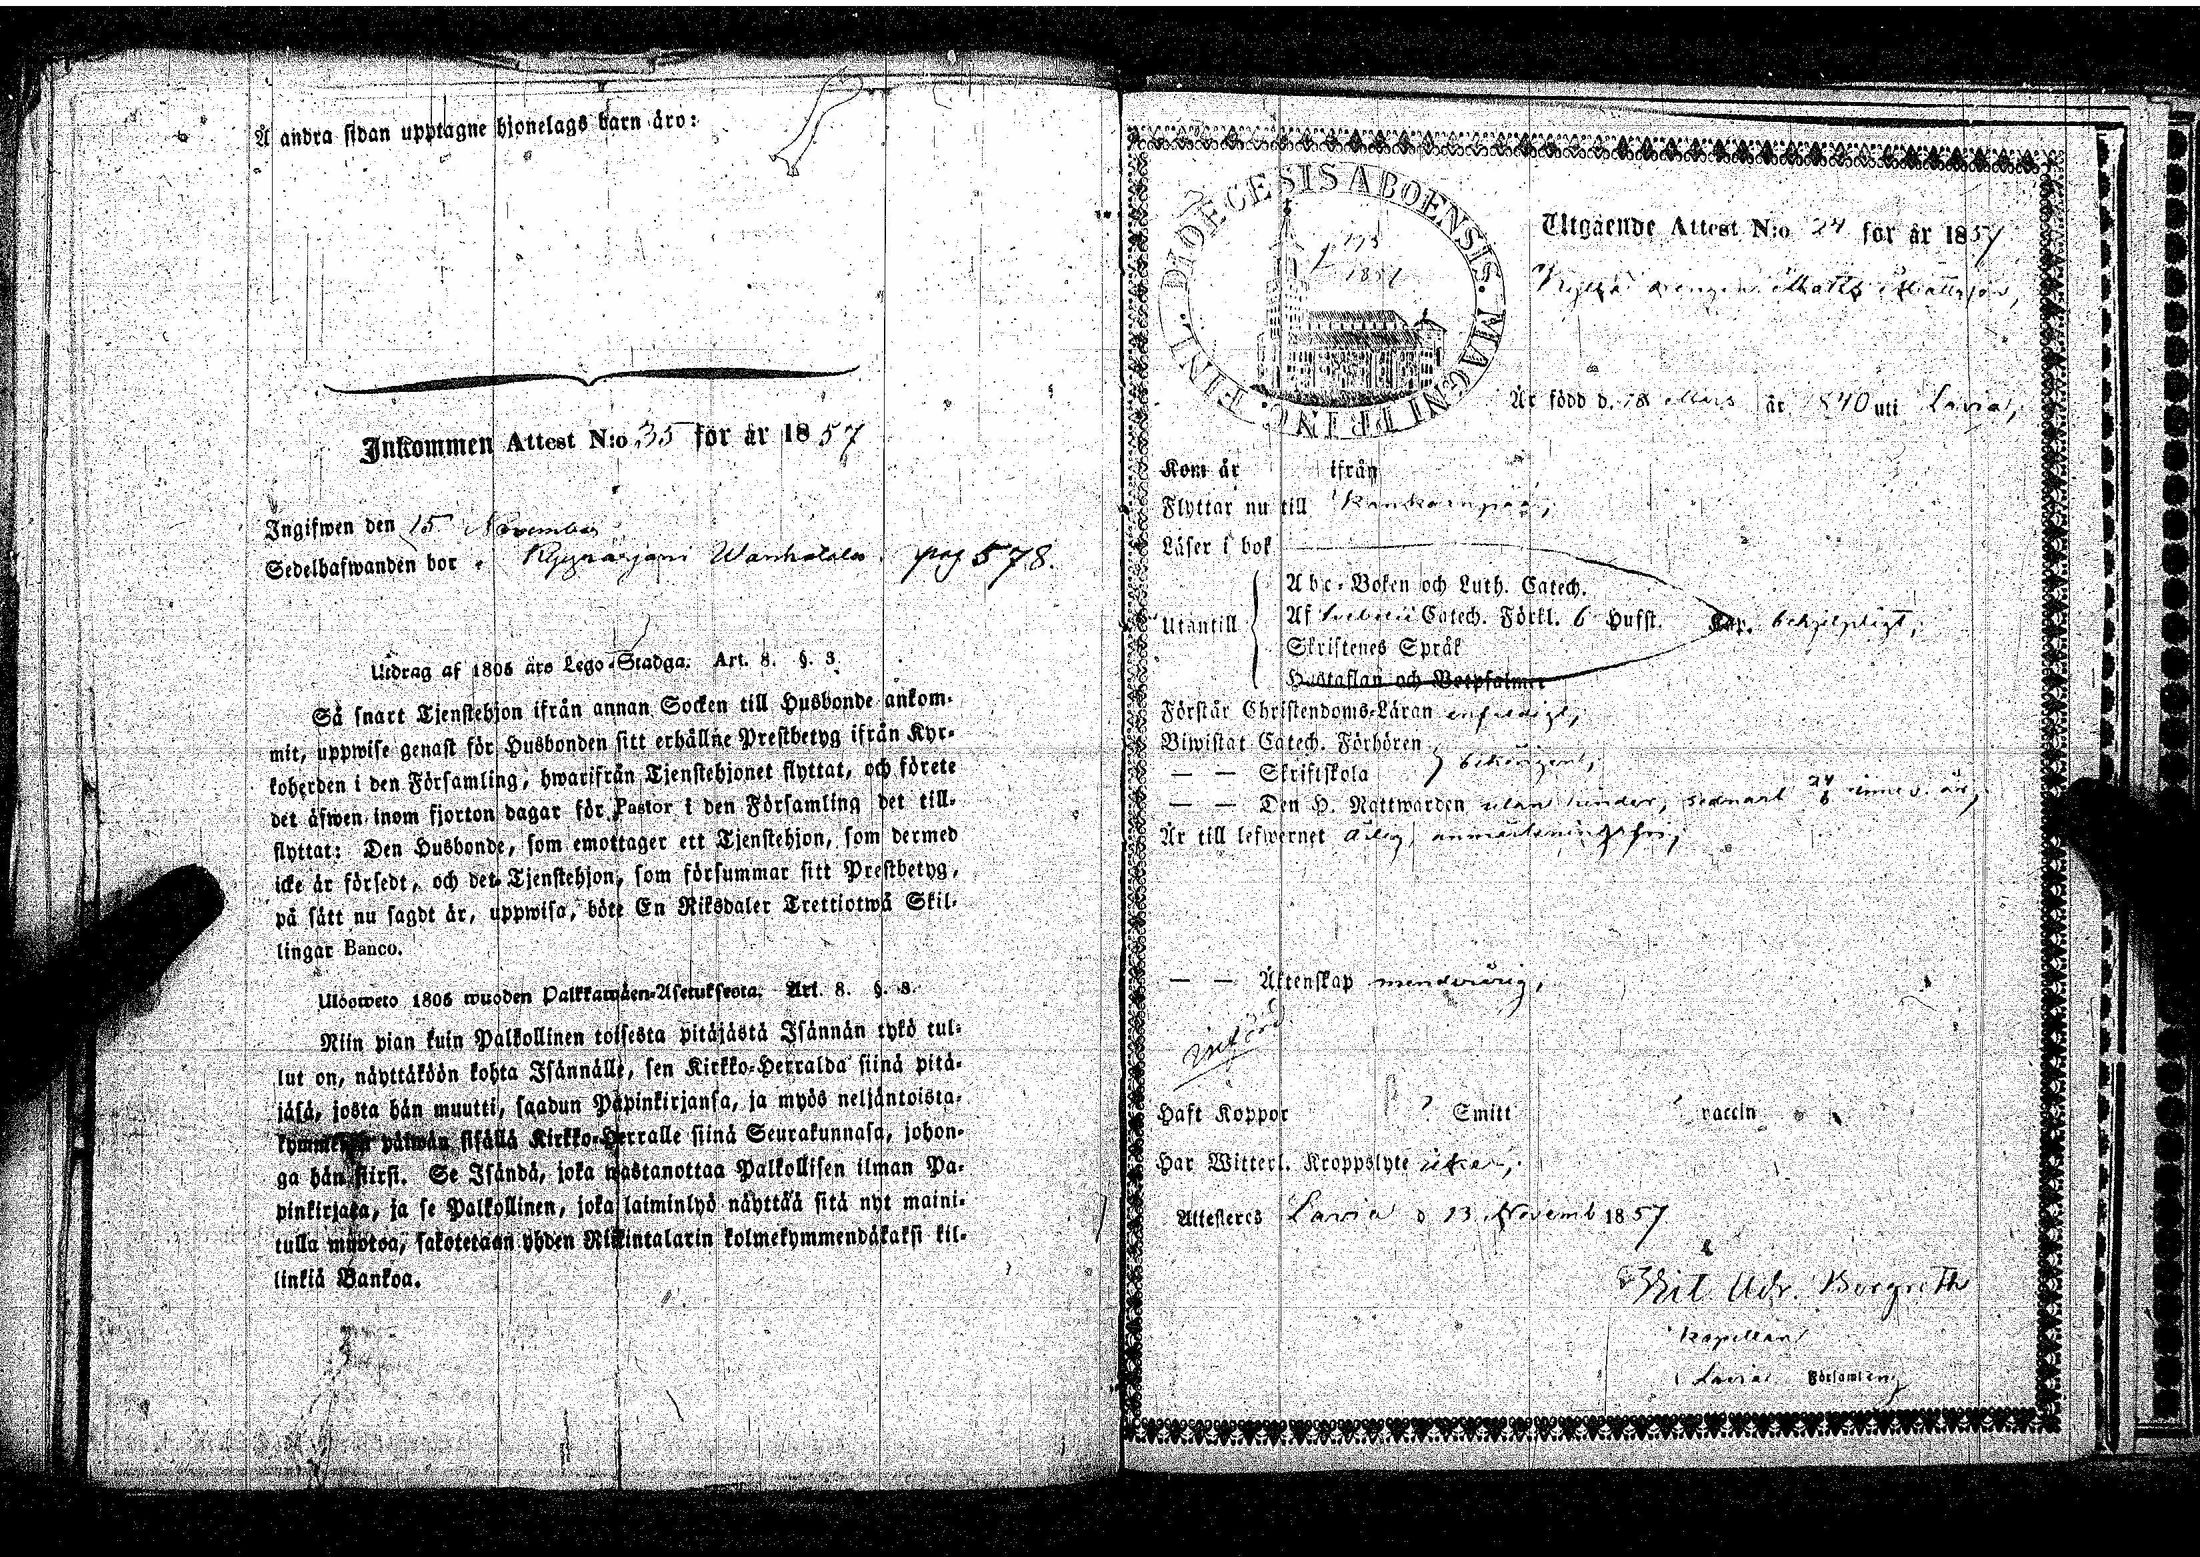 Å andra sidan upptagne hjonelags barn äro:
Inkommen Attest N:o 35 för år 1857
Ingifwen den 15 November
Sedelhafwanden bor pag 578.
Utdrag af 1805 års Lego-Stadga. Art. 8. §. 3.
Så snart Tjenstehjon ifrån annan Socken till Husbonde ankom-
mit, uppwise genast för Husbonden sitt erhållne Prestbetyg ifrån Kyr-
koherden i den Församling, hwarifrån Tjenstehjonet flyttat, och förete
det äfwen inom fjorton dagar för Pastor i den Församling det till-
flyttat: Den Husbonde, som emottager ett Tjenstehjon, som dermed
icke är försedt, och det Tjenstehjon, som försummar sitt Prestbetyg,
på sätt nu sagdt är, uppwisa, böte En Riksdaler Trettiotwå Skil-
lingar Banco.
Ulosweto 1805 wuoden Palkkawäen-Asetuksesta. Art. 8. §. 3.
Niin pian kuin Palkollinen toisesta pitäjästä Isännän tykö tul-
lut on, näyttäköön kohta Isännälle, sen Kirkko-Herralda siinä pitä-
jäsä, josta hän muutti, saadun Papinkirjansa, ja myös neljäntoista-
kymmenen päiwän sisällä Kirkko-Herralle siinä Seurakunnasa, johon-
ga hän siirsi. Se Isändä, joka wastanottaa Palkollisen ilman Pa-
pinkirjata, ja se Palkollinen, joka laiminlyö näyttää sitä nyt maini-
tulla muotoa, sakotetaan yhden Riikintalarin kolmekymmendäkaksi kil-
linkiä Bankoa.
DIOECESIS ABOENSIS. MAGNI PRINC. FINL.
1857
Utgående Attest N:o 24 för år 1857
drengen Matts Mattsson,
Är född d. 18 Mars år 1840 uti Lavia,
Kom år ifrån
Flyttar nu till Kankaanpää,
Läser i bok
Utantill
Abc-Boken och Luth. Catech.
Af Catech. Förkl. 6 Hufst. Cap. behjelpligt,
Skriftenes Språk
Hustaflan och Botpsalmer
Förstår Christendoms-Läran enfaldigt,
Biwistat Catech. Förhören
— — Skriftskola behörigent,
— — Den H. Nattwarden utan hinder, sednast 24/6 innev. år,
Är till lefwernet ärlig, anmärkningsfri,
— — Äktenskap minderårig,
införd
Haft Koppor ? Smitt vaccin
Har Witterl. Kroppslyte icke,
Attesteres Lavia d 13 Novemb 1857
Adr. Borgreth
Kapellan
Lavia Församling